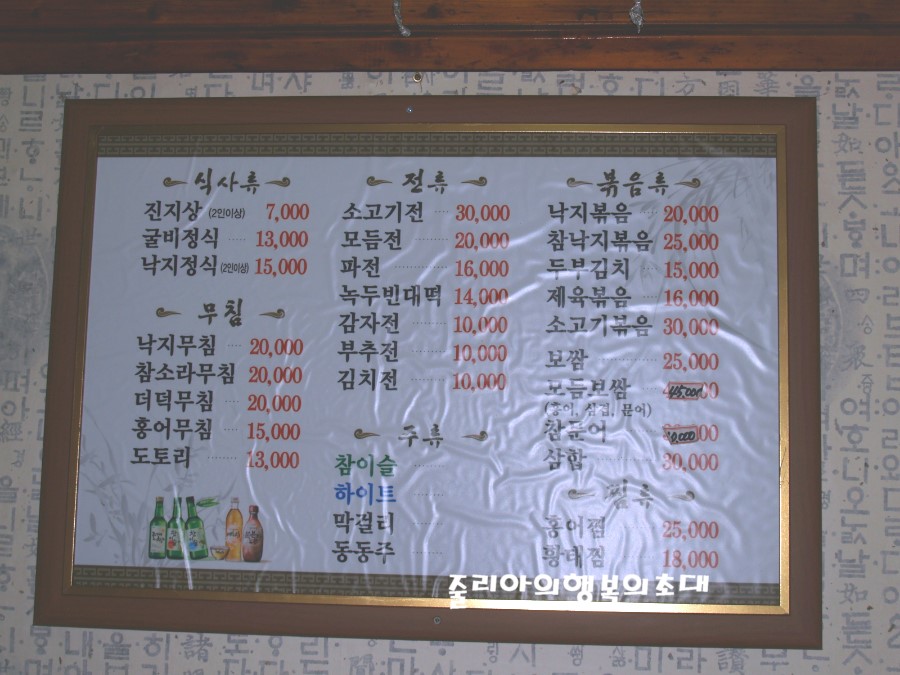 식사류
진지상 (2인이상) 7,000
굴비정식 13,000
낙지정식 (2인이상) 15,000
무침
낙지무침 20,000
참소라무침 20,000
더덕무침 20,000
홍어무침 15,000
도토리 13,000
전류
소고기전 30,000
모듬전 20,000
파전 16,000
녹두빈대떡 14,000
감자전 10,000
부추전 10,000
김치전 10,000
주류
참이슬
하이트
막걸리
동동주
볶음류
낙지볶음 20,000
참낙지볶음 25,000
두부김치 15,000
제육볶음 16,000
소고기볶음 30,000
보쌈 25,000
모듬보쌈 45,000
(홍어, 삼겹, 문어)
참문어
삼합 30,000
찜류
홍어찜 25,000
황태찜 18,000
줄리아의행복의초대